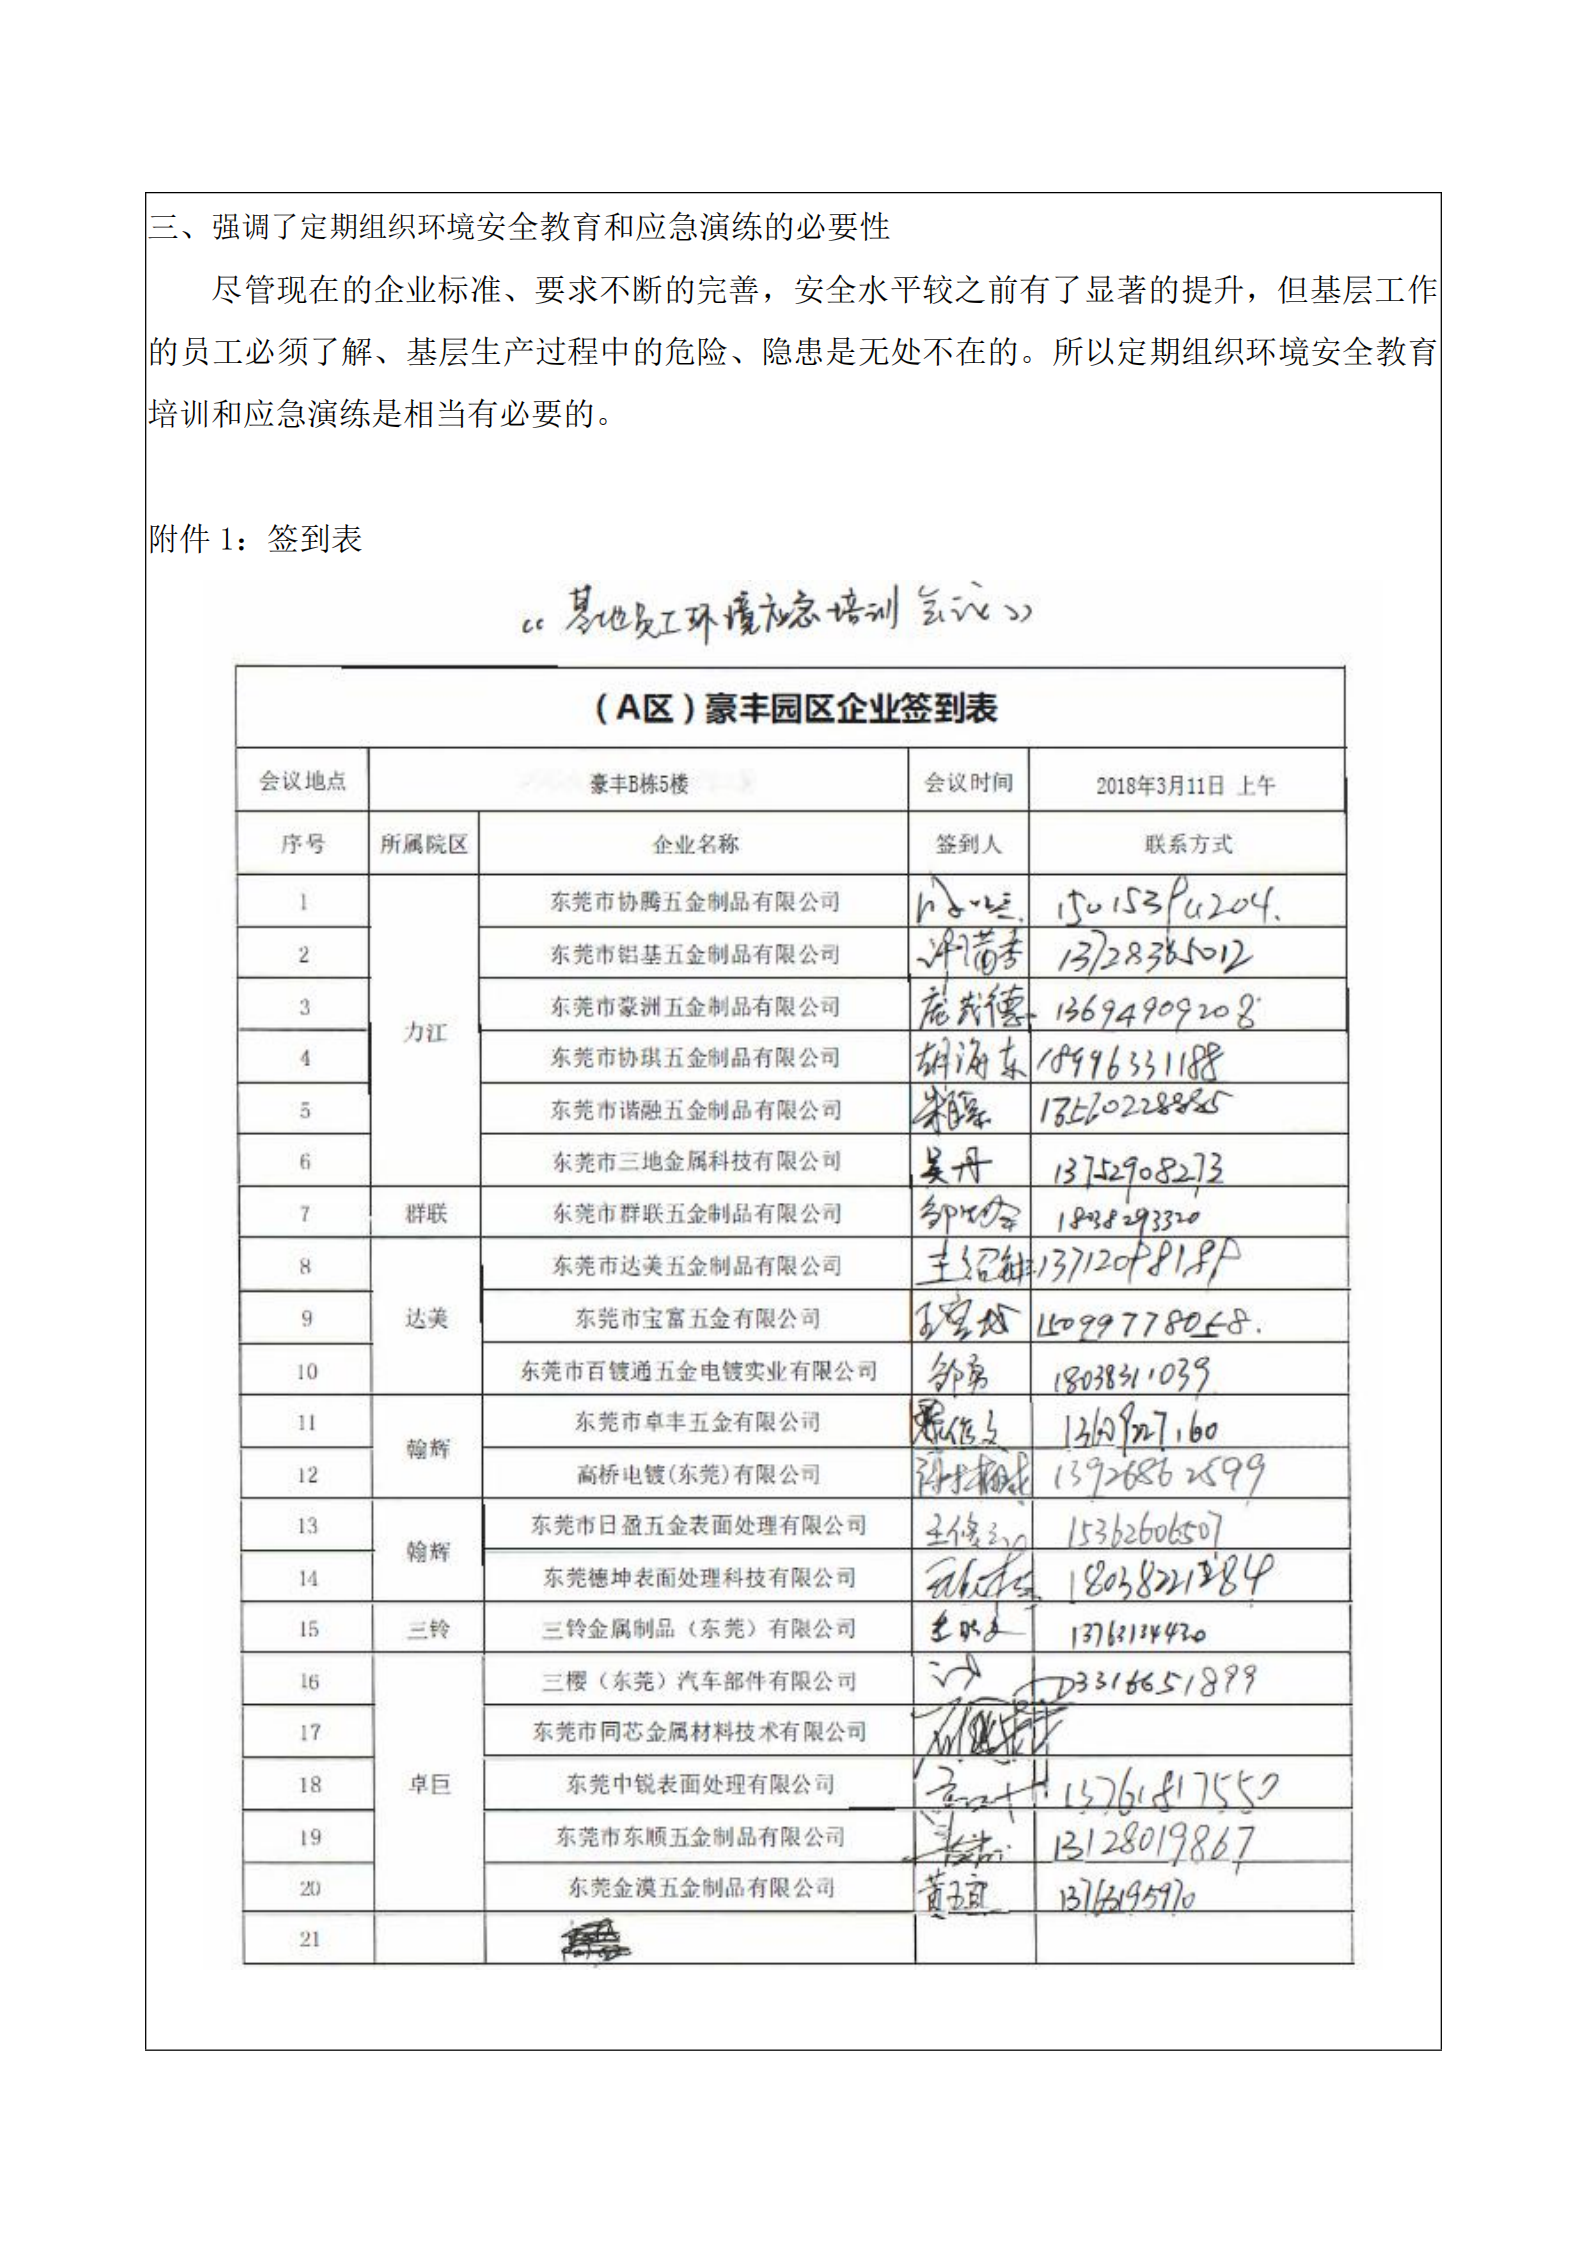 三、强调了定期组织环境安全教育和应急演练的必要性
尽管现在的企业标准、要求不断的完善，安全水平较之前有了显著的提升，但基层工作
的员工必须了解、基层生产过程中的危险、隐患是无处不在的。所以定期组织环境安全教育
培训和应急演练是相当有必要的。
附件 1：签到表
“基地员工环境应急培训会议”
（A区）豪丰园区企业签到表
会议地点 豪丰B栋5楼 会议时间 2018年3月11日 上午
序号 所属院区 企业名称 签到人 联系方式
1 东莞市协腾五金制品有限公司
2 东莞市铝基五金制品有限公司 13728365012
3 东莞市豪洲五金制品有限公司 13694909208
力江
4 东莞市协琪五金制品有限公司 胡海东 18996331188
5 东莞市谐融五金制品有限公司
6 东莞市三地金属科技有限公司 吴丹 13752908273
7 群联 东莞市群联五金制品有限公司 18038293320
8 东莞市达美五金制品有限公司
9 达美 东莞市宝富五金有限公司 15099778058.
10 东莞市百镀通五金电镀实业有限公司 邹勇 18038311039
11 东莞市卓丰五金有限公司
翰辉
12 高桥电镀(东莞)有限公司 13926862599
13 东莞市日盈五金表面处理有限公司 15362606507
翰辉
14 东莞德坤表面处理科技有限公司
15 三铃 三铃金属制品（东莞）有限公司 13763134420
16 三樱（东莞）汽车部件有限公司
17 东莞市同芯金属材料技术有限公司
18 卓巨 东莞中锐表面处理有限公司 13761817550
19 东莞市东顺五金制品有限公司 13128019867
20 东莞金漠五金制品有限公司 黄五宜 13763195970
21